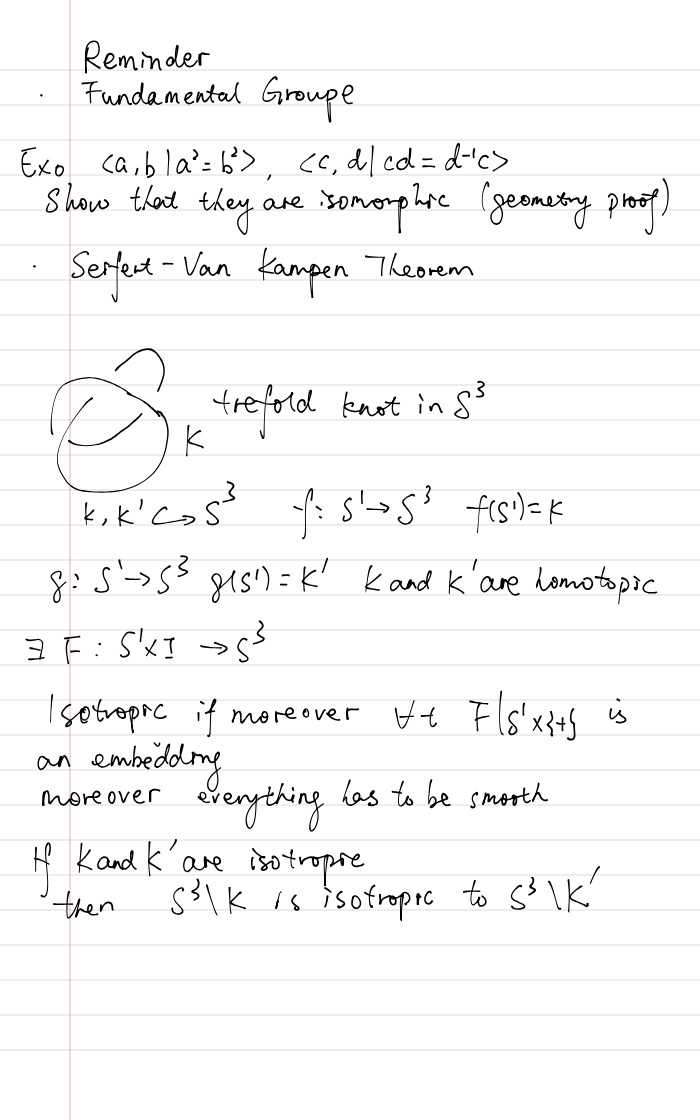 Reminder
· Fundamental Groupe
Exo <a, b | a² = b²>, <c, d | cd = d⁻¹c>
Show that they are isomorphic (geometry proof)
· Seifert - Van Kampen Theorem
trefold knot in S³
K
K, K' ↪ S³ f: S¹ → S³ f(S¹) = K
g: S¹ → S³ g(S¹) = K' K and K' are homotopic
∃ F: S¹ x I → S³
Isotropic if moreover ∀t F|S¹x{t} is
an embedding
moreover everything has to be smooth
If K and K' are isotropic
then S³\K is isotropic to S³\K'